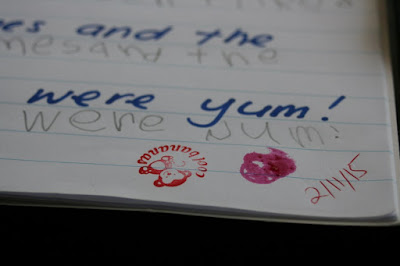 es and the
mesand the
were yum!
were yum!
2/11/15